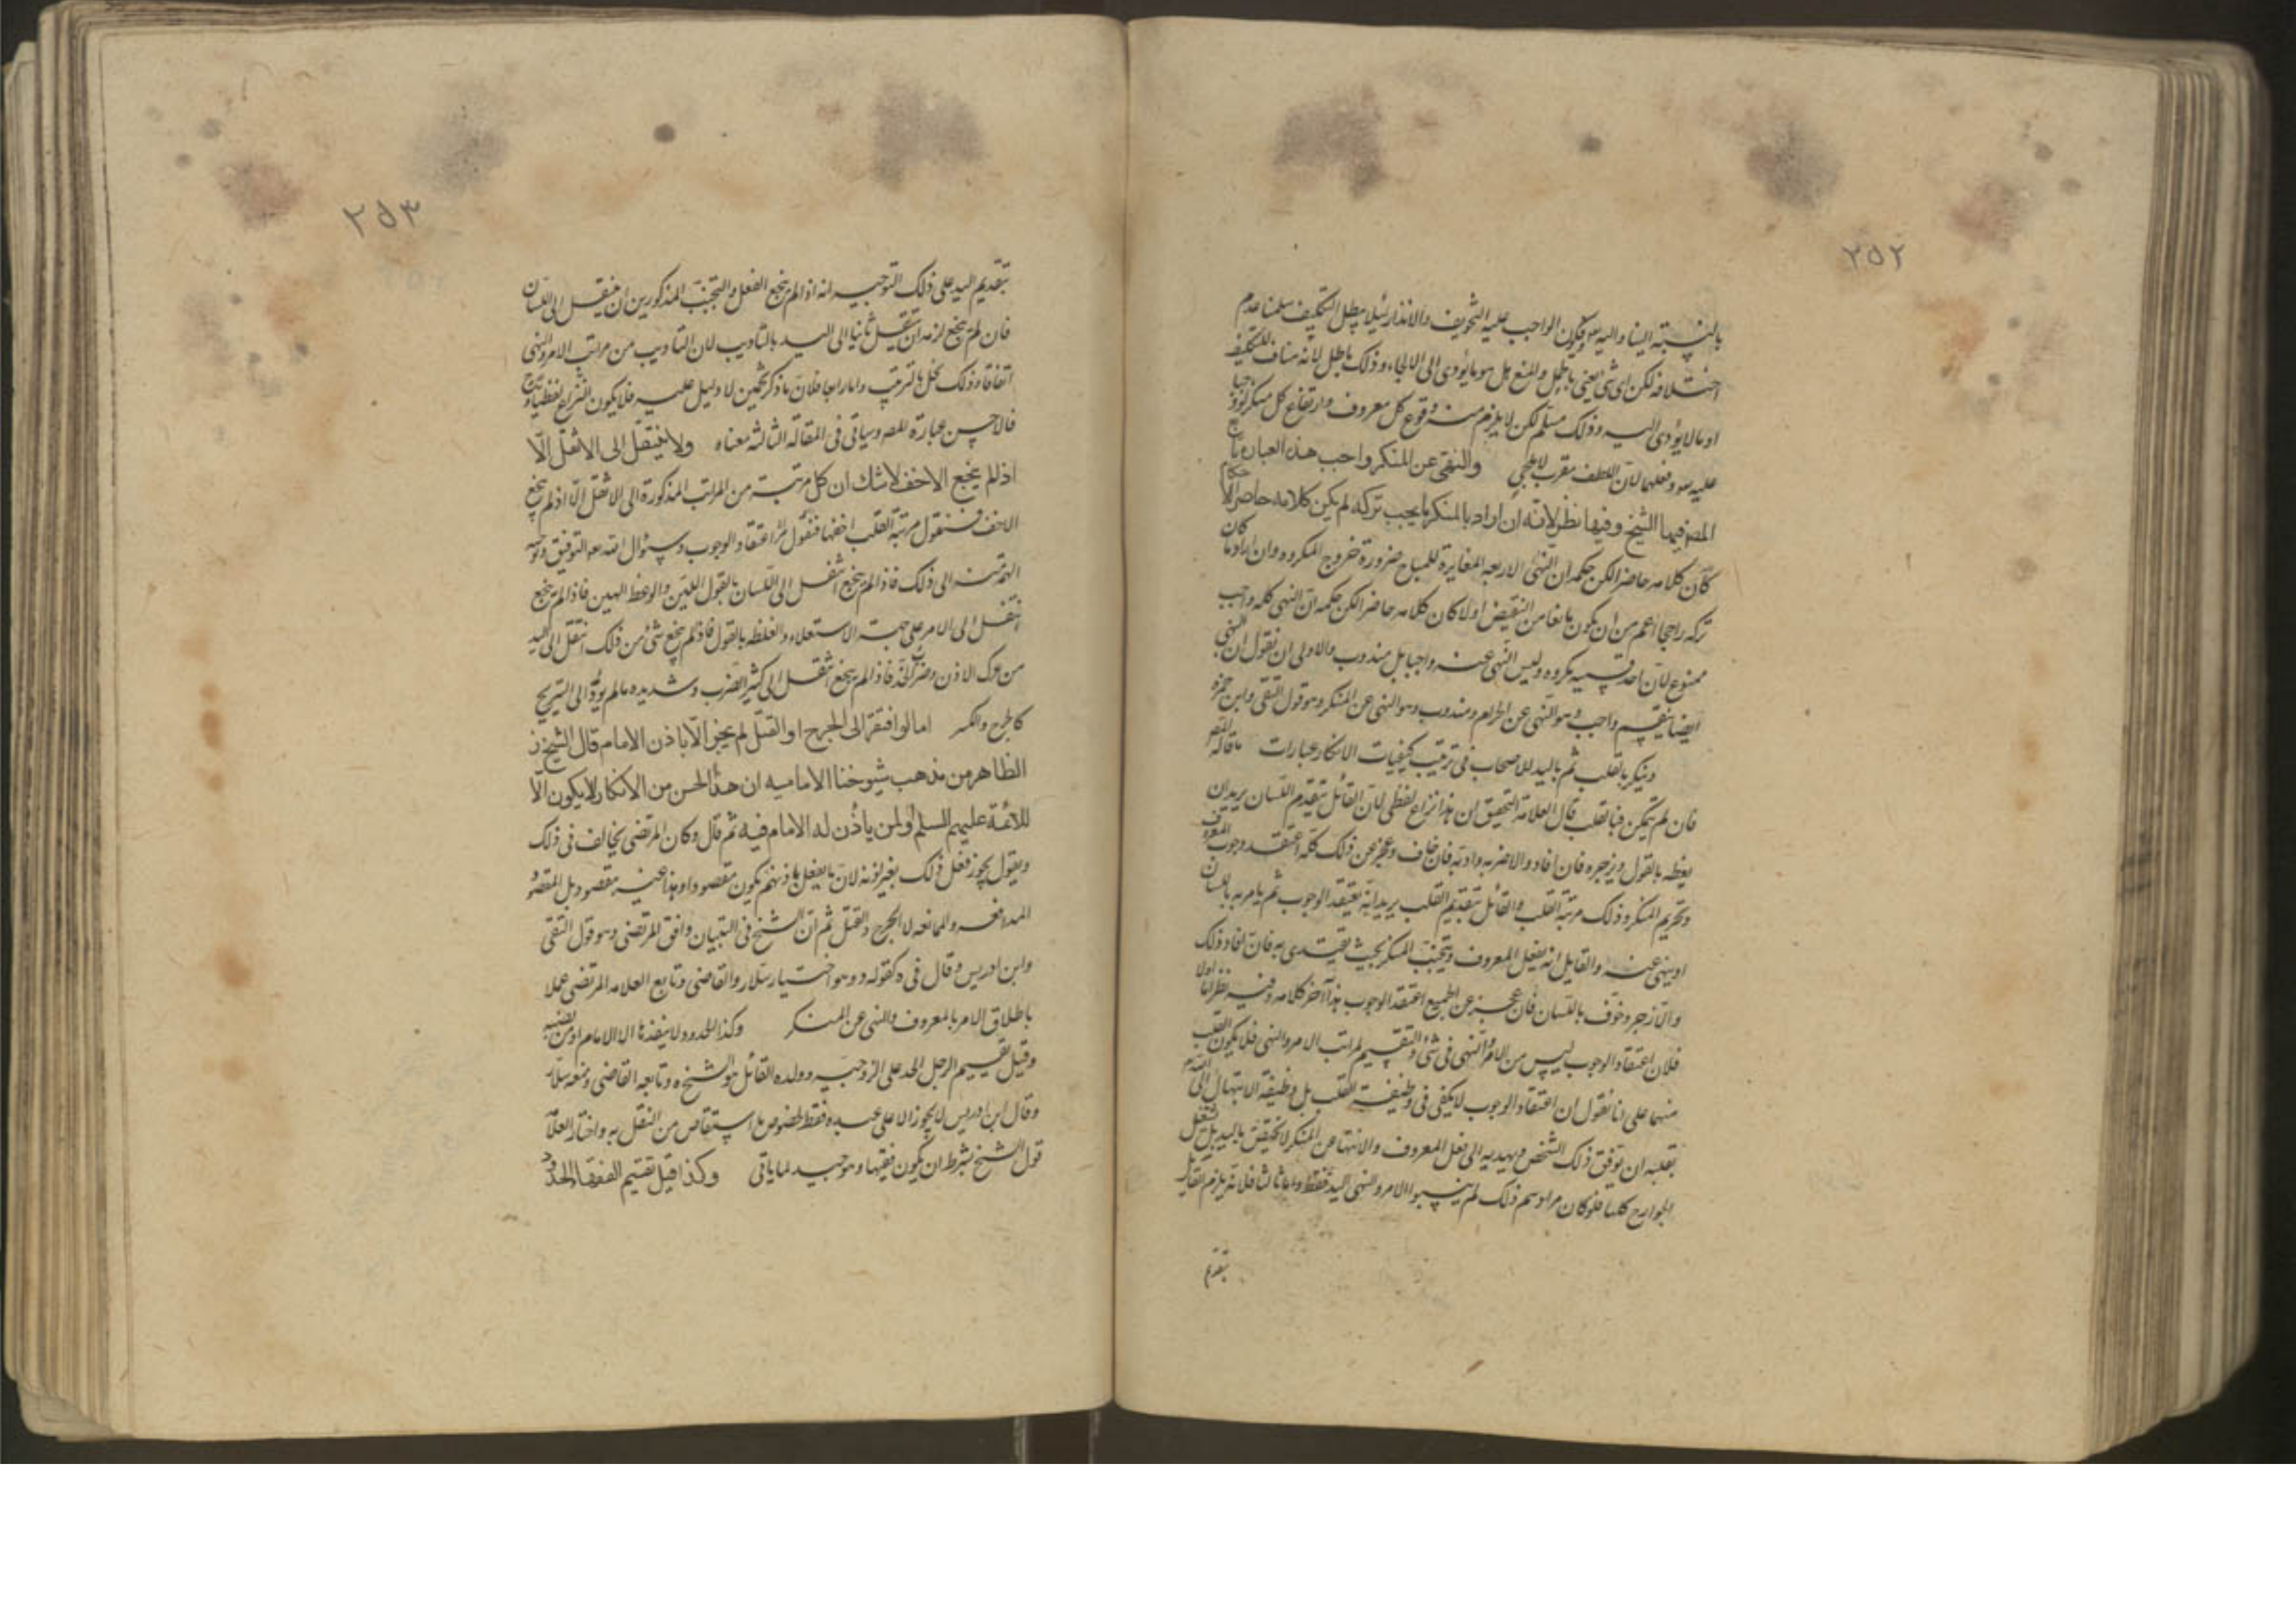 ٢٥٢
بالنسبة الينا واليه سو فيكون الواجب عليه التخويف والانذار لئلا يبطل التكليف سلمنا عدم
اختلافه لكن اى شئ يعنى باطل والمنع بل هو ما يؤدى الى الالجاء وذلك باطل لانه مناف للتكليف
او ما لا يؤدى اليه وذلك مسلم لكن لا يلزم منه وقوع كل معروف وارتفاع كل منكر لجواز
عليه سو وفعلهما لان اللطف مقرب لا ملجئ والنهى عن المنكر واجب هذه العبارة تابع
المصر فيها الشيخ وفيها نظر لانه ان اراد بالمنكر ما يجب تركه لم يكن كلامه حاصرا
كان كلامه حاضرا لكن حكمه ان النهى الاربعه المغايرة للمباح ضرورة خروج المكروه وان اراد ما كان
تركه راجحا اعم من ان يكون مانعا من النقيض اولا كان كلامه حاضرا لكن حكمه ان النهى كله واجب
ممنوع لان احد قسميه مكروه وليس النهى عنه واجبا بل مندوب والاولى ان نقول ان النهى
ايضا ينقسم واجب وهو النهى عن الحرام ومندوب وهو النهى عن المنكر وهو قول التقى وابن حمزه
وينكر بالقلب ثم باليد للاصحاب فى ترتيب كيفيات الانكار عبارات ما قاله المصر
فان لم يتمكن فبالقلب قال العلامة التحقيق ان هذا نزاع لفظى لان القائل بتقديم اللسان يريد ان
يعظه بالقول ويزجره فان افاد والا ضربه وادبه فان خاف وعجز عن ذلك كله اعتقد وجوب المعروف
وتحريم المنكر وذلك مرتبة القلب والقائل بتقديم القلب يريد انه يعتقد الوجوب ثم يامر به باللسان
او ينهى عنه والقايل انه يفعل المعروف ويتجنب المنكر بحيث يقتدى به فان افاد ذلك
والا زجر وخوف باللسان فان عجز عن الجميع اعتقد الوجوب هذا آخر كلامه وفيه نظر اما اولا
فلان اعتقاد الوجوب ليس من الامر والنهى فى شئ والتقسيم لمراتب الامر والنهى فلا يكون القلب
منها على انا نقول ان اعتقاد الوجوب لا يكفى فى وظيفة القلب بل وظيفة الابتهال الى الله
بقلبه ان يوفق ذلك الشخص ويهديه الى فعل المعروف والانتها عن المنكر لا تختص باليد بل تشمل
الجوارح كلها فلو كان مرادهم ذلك لم ينسبوا الامر والنهى اليد فقط واما ثالثا فلانه يلزم القايل
بتقديم
٢٥٣
بتقديم اليد على ذلك التوجيه انه اذا لم ينجع الفعل والتجنب المذكورين ان ينتقل الى اللسان
فان لم ينجع لزمه ان ينتقل ثانيا الى اليد بالتاديب لان التاديب من مراتب الامر والنهى
اتفاقا وذلك مخل بالترتيب واما رابعا فلان ما ذكر تخمين لا دليل عليه فلا يكون النزاع لفظيا
فالاحسن عبارة المصر وسياتى فى المقالة الثالثه معناه ولا ينتقل الى الاثقل الّا
اذ لم ينجع الاخف لا شك ان كل مرتبة من المراتب المذكورة الى الاثقل الّا اذ لم ينجع
الاخف فنقول مرتبة القلب اخفها فنقول اثر اعتقاد الوجوب وسؤال الله سه التوفيق وتوجيه
الهمة منه الى ذلك فاذا لم ينجع انتقل الى اللسان بالقول اللين والوعظ الهين فاذا لم ينجع
انتقل الى الامر على جهة الاستعلاء والغلظه بالقول فاذا لم ينجع شئ من ذلك انتقل الى اليد
من عرك الاذن وضرب الخد فاذا لم ينجع انتقل الى كثير الضرب وشديده ما لم يؤد الى التبريح
كالجرح والكسر اما لو افتقر الى الجرح او القتل لم يجز الا باذن الامام قال الشيخ ره
الظاهر من مذهب شيوخنا الاماميه ان هذا الجنس من الانكار لا يكون الّا
للائمة عليهم السلم او لمن ياذن له الامام فيه ثم قال وكان المرتضى يخالف فى ذلك
ويقول يجوز فعل ذلك بغير اذنه لان ما يفعل باذنهم يكون مقصودا وهذا غيره مقصود بل المقصود
المدافعه والممانعه لا الجرح والقتل ثم ان الشيخ فى التبيان وافق المرتضى وهو قول التقى
وابن ادريس وقال فى ه كقوله د وهو اختيار سلار والقاضى وتابع العلامه المرتضى عملا
باطلاق الامر بالمعروف والنهى عن المنكر وكذا الحدود لا ينفذها الا الامام او من نصبه
وقيل يقيم الرجل الحد على الزوجه وولده القائل هو الشيخ ره وتابعه القاضى ومنعه سلار
وقال ابن ادريس لا يجوز الا على عبده فقط لخصوص ما استفاض من النقل به واختار العلامة
قول الشيخ بشرط ان يكون فقيها وهو جيد لما ياتى وكذا قيل تقيم الفقها الحدود